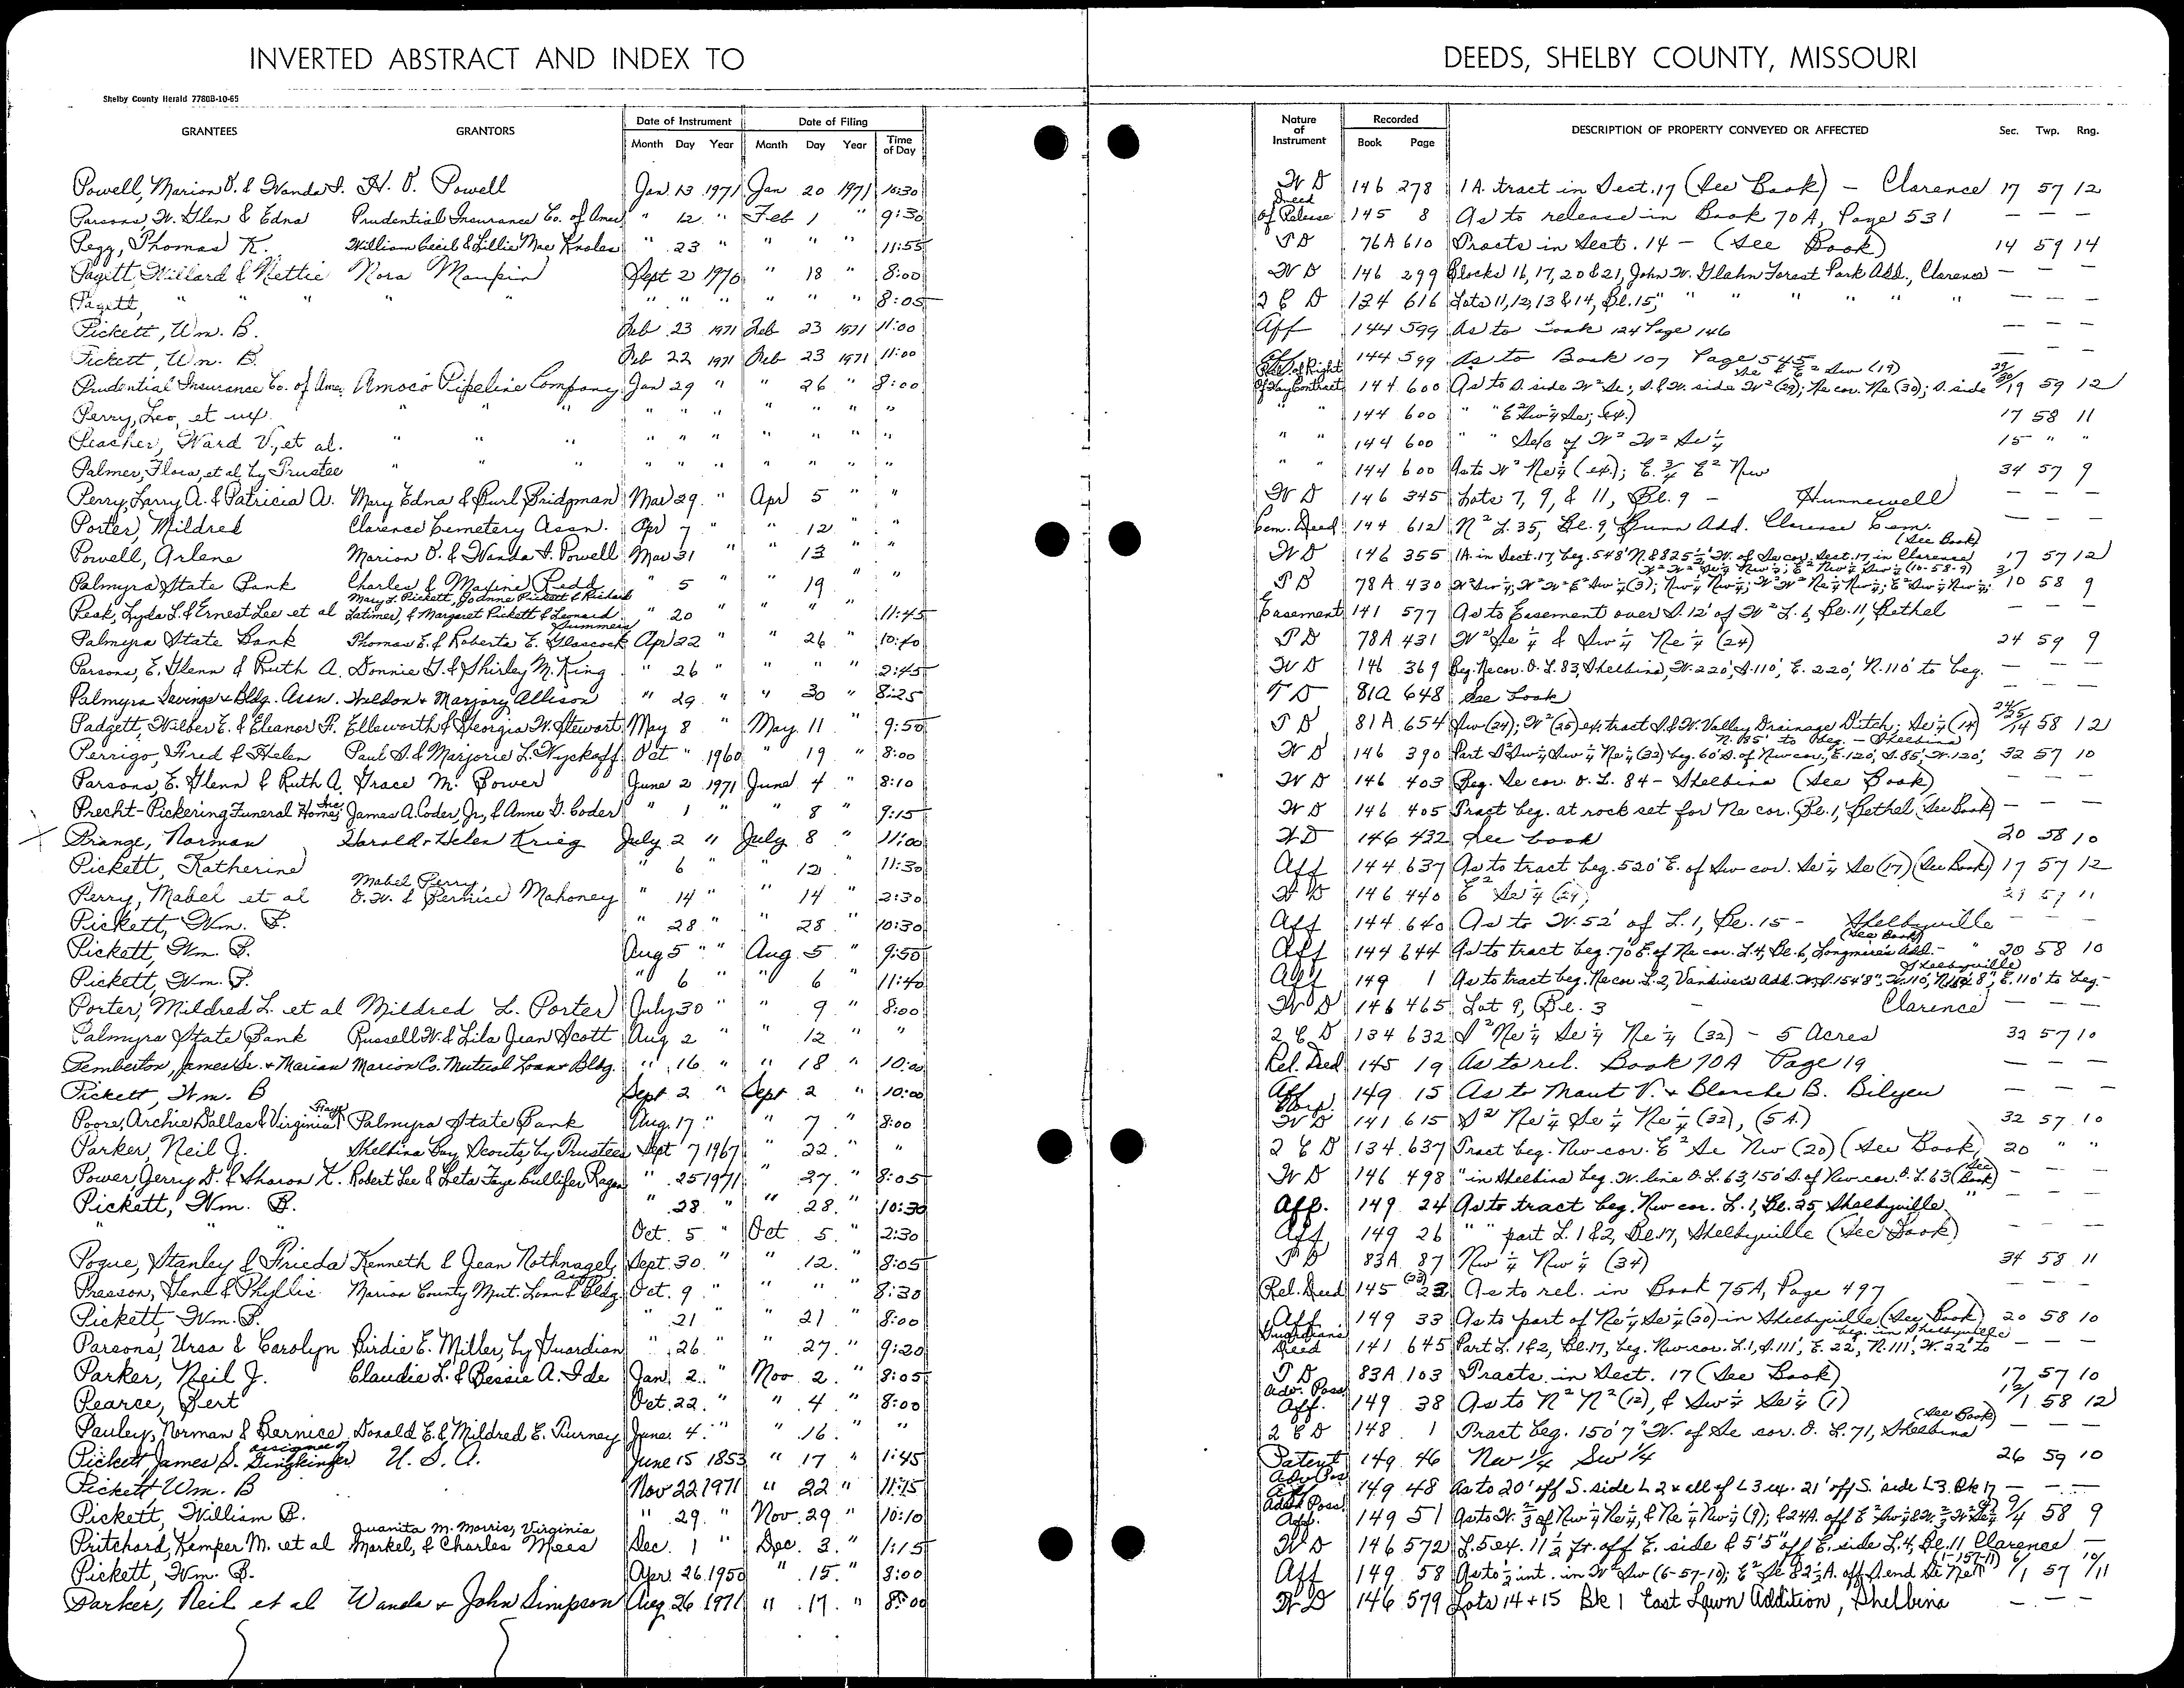 INVERTED ABSTRACT AND INDEX TO DEEDS, SHELBY COUNTY, MISSOURI
Shelby County Herald 7780B-10-65
GRANTEES GRANTORS Date of Instrument Month Day Year Date of Filing Month Day Year Time of Day Nature of Instrument Recorded Book Page DESCRIPTION OF PROPERTY CONVEYED OR AFFECTED Sec. Twp. Rng.
Powell, Marion O. & Wanda I. H. O. Powell Jan 13 1971 Jan 20 1971 10:30 W D 146 278 1 A. tract in Sect. 17 (See Book) - Clarence 17 57 12
Parsons, W. Glen & Edna Prudential Insurance Co. of Amer. " 12 " Feb 1 " 9:30 Deed of Release 145 8 As to release in Book 70 A, Page 531 — — —
Pegg, Thomas K. William Cecil & Lillie Mae Knoles " 23 " " " " 11:55 T D 76A 610 Tracts in Sect. 14 - (See Book) 14 59 14
Pagitt, Willard & Nettie Nora Maupin Sept 2 1970 " 18 " 8:00 W D 146 299 Blocks 16, 17, 20 & 21, John W. Glahn Forest Park Add., Clarence — — —
Pagitt, " " " " " " " " " " 8:05 2 C D 134 616 Lots 11, 12, 13 & 14, Bl. 15, " " " " " — — —
Pickett, Wm. B. Feb 23 1971 Feb 23 1971 11:00 Aff 144 599 As to Book 124 Page 146 — — —
Pickett, Wm. B. Feb 22 1971 Feb 23 1971 11:00 Aff 144 599 As to Book 107 Page 545 — — —
Prudential Insurance Co. of Ame. Amoco Pipeline Company Jan 29 " " 26 " 8:00 of Right of Way Contract 144 600 As to S. side W² Se; S. & W. side W² (29); Ne cor. Ne (30); S. side Se & E² Sw (19) 29/30/19 59 12
Perry, Leo, et ux. " " " " " " " " " " " " 144 600 " " E² Sw¼ Se; (ex.) 17 58 11
Peacher, Ward V., et al. " " " " " " " " " " " " 144 600 " " Se/c of W² W² Se¼ 15 " "
Palmer, Flora, et al, by Trustee " " " " " " " " " " " " 144 600 As to W² Ne¼ (ex.); E. ¾ E² Nw 34 57 9
Perry, Larry A. & Patricia A. Mary Edna & Burl Bridgman Mar 29 " Apr 5 " " W D 146 345 Lots 7, 9, & 11, Bl. 9 - Hunnewell — — —
Porter, Mildred Clarence Cemetery Assn. Apr 7 " " 12 " " Cem. Deed 144 612 N² L. 35, Bl. 9, Bunn Add. Clarence Cem. — — —
Powell, Arlene Marion O. & Wanda I. Powell Mar 31 " " 13 " W D 146 355 1A. in Sect. 17, beg. 548' N & 825½' W. of Se cor. Sect. 17, in Clarence (See Book) 17 57 12
Palmyra State Bank Charles & Maxine Redd " 5 " 19 " T D 78A 430 W² Sw¼; W² W² E² Sw¼ (3); Nw¼ Nw¼; W² W² Ne¼ Nw¼; E² Sw¼ Nw¼; W² W² Se¼ Nw¼; E² Nw¼ Sw¼ (10-58-9) 3/10 58 9
Peak, Lyda L. & Ernest Lee et al Mary L. Pickett, Joanne Pickett & Richard Latimer, & Margaret Pickett & Leonard Summers " 20 " " " 11:45 Easement 141 577 As to Easement over S. 12' of W² L. 6, Bl. 11, Bethel — — —
Palmyra State Bank Thomas E. & Roberta E. Glascock Apr 22 " " 26 " 10:40 T D 78A 431 W² Se¼ & Sw¼ Ne¼ (24) 24 59 9
Parsons, E. Glenn & Ruth A. Donnie G. & Shirley M. King " 26 " " " " 2:45 W D 146 369 Beg. Ne cor. O. L. 83, Shelbina, W. 220', S. 110', E. 220', N. 110' to beg. — — —
Palmyra Savings & Bldg. Assn. Weldon & Marjory Allison " 29 " " 30 " 8:25 T D 81A 648 See Book — — —
Padgett, Wilber E. & Eleanor F. Ellsworth & Georgia W. Stewart May 8 " May 11 " 9:50 T D 81A 654 Sw (24); W² (25) ex. tract S. & W. Valley Drainage Ditch; Se¼ (14) 24/25/14 58 12
Perrigo, Fred & Helen Paul S. & Marjorie L. Wyckoff Oct " 1960 " 19 " 8:00 W D 146 390 Part S² Sw¼ Sw¼ Ne¼ (32) beg. 60' S. of Nw cor., E. 120', S. 85', W. 120', N. 85' to beg. - Shelbina 32 57 10
Parsons, E. Glenn & Ruth A. Grace M. Bower June 2 1971 June 4 " 8:10 W D 146 403 Beg. Se cor. O. L. 84 - Shelbina (See Book) — — —
Precht-Pickering Funeral Homes Inc. James A. Coder, Jr., & Anne G. Coder " 1 " 8 " 9:15 W D 146 405 Tract beg. at rock set for Ne cor. Bl. 1, Bethel (See Book) — — —
Prange, Norman Harold & Helen Krieg July 2 " July 8 " 11:00 W D 146 432 See book 20 58 10
Pickett, Katherine " 6 " 12 11:30 Aff 144 637 As to tract beg. 520' E. of Sw cor. Se¼ Se (17) (See Book) 17 57 12
Perry, Mabel et al Mabel Perry, O. W. & Bernice Mahoney " 14 " " 14 " 2:30 W D 146 440 E² Se¼ 57 11
Pickett, Wm. B. " 28 " 28 " 10:30 Aff 144 640 As to W. 52' of L. 1, Bl. 15 - Shelbyville — —
Pickett, Wm. B. Aug 5 " " Aug. 5 " 9:50 Aff 144 644 As to tract beg. 70' E. of Ne cor. L. 4, Bl. 6, Longmire's Add. - " (See Book) 20 58 10
Pickett, Wm. B. " 6 " 6 " 11:40 Aff 149 1 As to tract beg. Ne cor. L. 2, Vandiver's Add. Shelbyville, S. 154'8", W. 110', N. 154'8", E. 110' to beg.
Porter, Mildred L. et al Mildred L. Porter July 30 " " 9 " 8:00 W D 146 465 Lot 9, Bl. 3 - Clarence — — —
Palmyra State Bank Russell W. & Lila Jean Scott Aug 2 " " 12 " " 2 C D 134 632 S² Ne¼ Se¼ Ne¼ (32) - 5 Acres 32 57 10
Pemberton, James Sr. & Marian Marion Co. Mutual Loan & Bldg. " 16 " " 18 " 10:00 Rel. Deed 145 19 As to rel. Book 70A Page 19 — —
Pickett, Wm. B Sept 2 " Sept 2 " 10:00 Aff 149 15 As to Maut V. & Blanche B. Bilyeu — — —
Poore, Archie Dallas & Virginia Palmyra State Bank Aug. 17 " " 7 " 8:00 Corp. W D 141 615 S² Ne¼ Se¼ Ne¼ (32), (5 A.) 32 57 10
Parker, Neil J. Shelbina Boy Scouts, by Trustees Sept 7 1967 " 22 " " 2 C D 134 637 Tract beg. Nw cor. E² Se Nw (20) (See Book) 20 " "
Power, Jerry D. & Sharon K. Robert Lee & Leta Faye Gullifer Ragan " 25 1971 " 27 " 8:05 W D 146 498 " in Shelbina beg. W. line O. L. 63, 150' S. of Nw cor. O. L. 63 (See Book) — — —
Pickett, Wm. B. " 28 " " 28 " 10:30 Aff. 149 24 As to tract beg. Nw cor. L. 1, Bl. 25, Shelbyville — —
" " Oct. 5 " Oct 5 " 2:30 Aff 149 26 " " part L. 1 & 2, Bl. 17, Shelbyville (See Book) — — —
Pogue, Stanley & Frieda P. Kenneth & Jean Rothnagel Sept. 30 " " 12 " 8:05 T D 83A 87 Nw¼ Nw¼ (34) 34 58 11
Preason, Gene & Phyllis Marion County Mut. Loan & Bldg. Assn Oct. 9 " " " " 8:30 Rel. Deed 145 23 (23) As to rel. in Book 75A, Page 497 — — —
Pickett, Wm. B. 21 " 21 " 8:00 Aff 149 33 As to part of Ne¼ Se¼ (20) in Shelbyville (See Book) 20 58 10
Parsons, Ursa & Carolyn Birdie E. Miller, by Guardian " 26 " " 27 " 9:20 Guardians Deed 141 645 Part L. 1 & 2, Bl. 17, beg. Nw cor. L. 1, S. 111', E. 22', N. 111', W. 22' to beg. in Shelbyville — —
Parker, Neil J. Claudie L. & Bessie A. Ide Jan. 2 " Nov. 2 " 8:05 T D 83A 103 Tracts in Sect. 17 (See Book) 17 57 10
Pearce, Bert Oct. 22 " " 4 " 8:00 Adv. Poss. Aff. 149 38 As to N² N² (12), & Sw¼ Se¼ (1) 12/1 58 12
Pauley, Norman & Bernice Donald E. & Mildred E. Turney June 4 " " 16 " " 2 C D 148 1 Tract beg. 150'7" W. of Se cor. O. L. 71, Shelbina (See Book)
Pickett James S. assignee of U. S. A. June 15 1853 " 17 " 1:45 Patent 149 46 Nw 1/4 Sw 1/4 26 59 10
Pickett Wm. B Nov 22 1971 " 22 " 11:15 Adv Pos Aff 149 48 As to 20' off S. side L 2 & all of L 3 ex. 21' off S. side L 3. Bk 17 — — —
Pickett, William B. " 29 " Nov. 29 " 10:10 Adv. Poss. Aff. 149 51 As to W. ⅔ of Nw¼ Ne¼, & Ne¼ Nw¼ (9); & 24A. off E² Sw¼ 9/4 58 9
Pritchard, Kemper M. et al Juanita M. Morris, Virginia Markel, & Charles Mees Dec. 1 " Dec. 3 " 1:15 W D 146 572 L. 5 ex. 11½ ft. off E. side & 5'5" off E. side L. 4, Bl. 11 Clarence —
Pickett, Wm. B. Apr 26 1950 " 15 " 8:00 Aff 149 58 As to ½ int. in W² Sw (6-57-10); E² Se & 2½ A. off S. end Se Ne (1-57-11) 6/1 57 10/11
Parker, Neil et al Wanda & John Simpson Aug 26 1971 " 17 " 8:00 W D 146 579 Lots 14 + 15 Bk 1 East Lawn Addition, Shelbina — — —